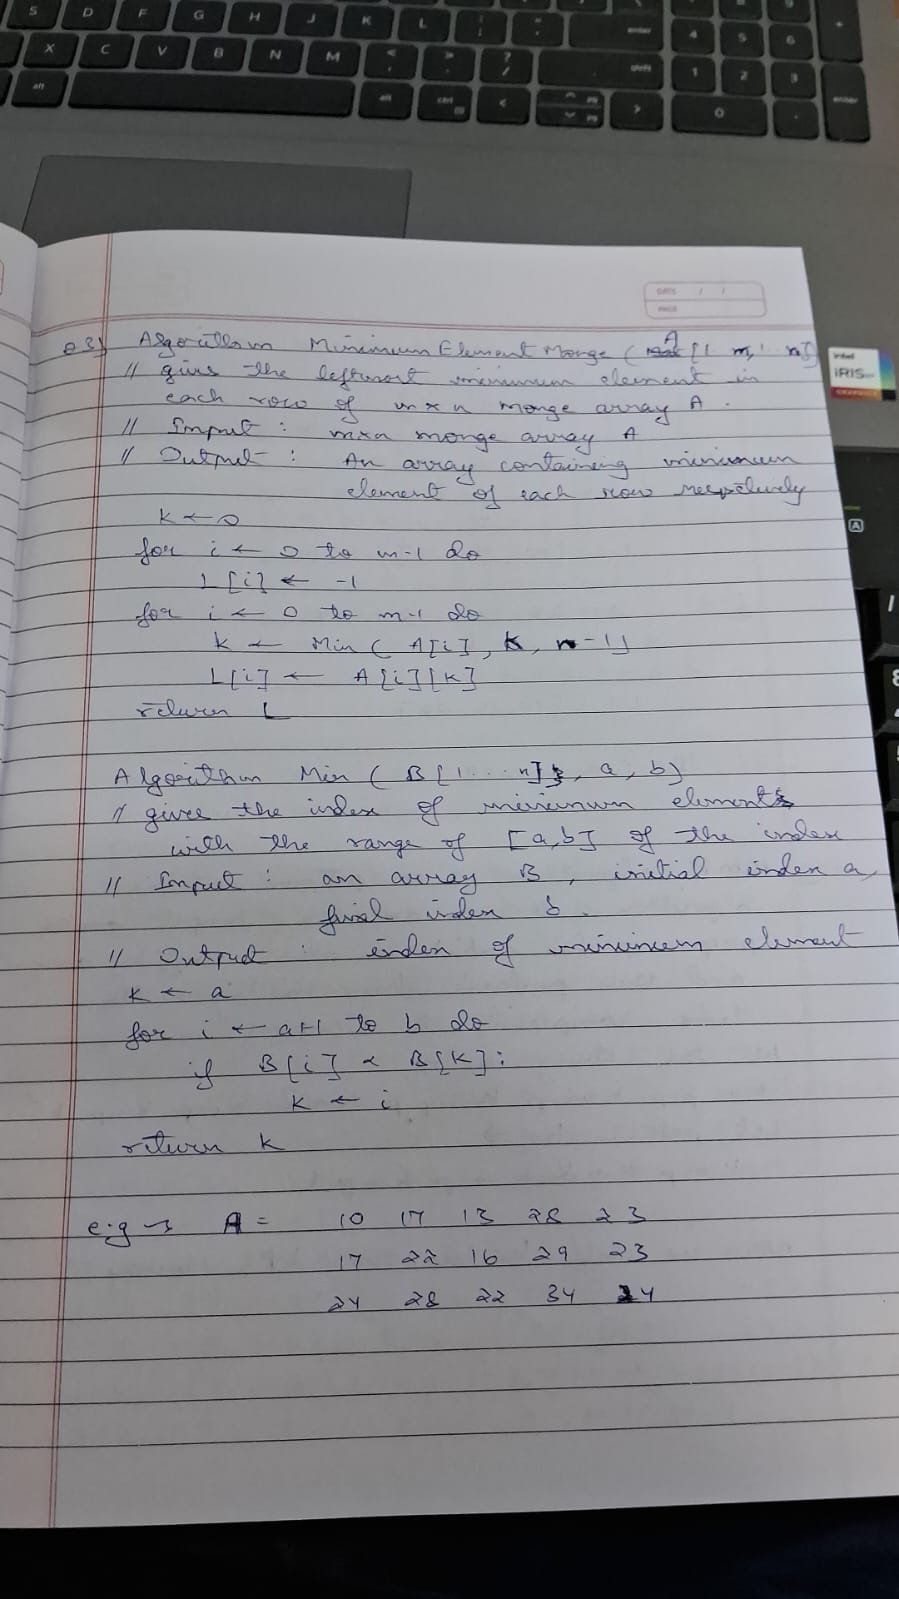 S D F G H J K L
X C V B N M
alt alt ctrl
enter
shift
4 5 6
1 2 3
0 .
enter
DATE / /
PAGE
intel
iRIS
GRAPHICS
Q 3) Algorithm Minimum Element Monge ( A [1 m, n])
// gives the leftmost minimum element in
each row of m x n monge array A .
// Input : mxn monge array A
// Output : An array containing minimum
element of each row respectively
K ← 0
for i ← 0 to m-1 do
L [i] ← -1
for i ← 0 to m-1 do
K ← Min ( A[i], K, n-1)
L[i] ← A [i][K]
return L
Algorithm Min ( B [1 ... n], a, b)
// gives the index of minimum element
with the range of [a,b] of the index
// Input : an array B , initial index a,
final index b .
// Output : index of minimum element
K ← a
for i ← a+1 to b do
if B[i] < B[K] :
K ← i
return K
e.g → A = 10 17 13 28 23
17 22 16 29 23
24 28 22 34 24